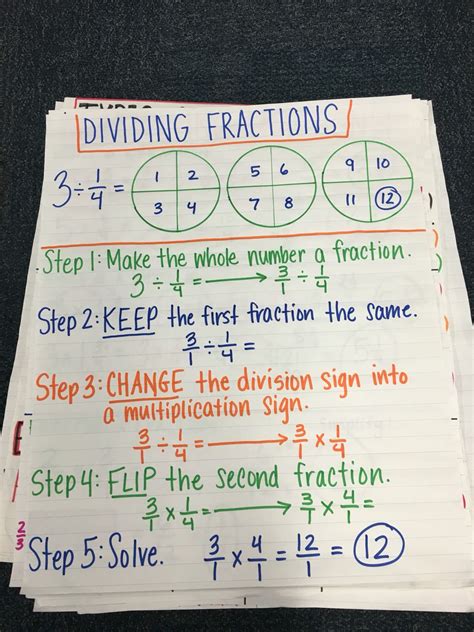 DIVIDING FRACTIONS
3 ÷ 1/4 =
1 2 3 4
5 6 7 8
9 10 11 12
Step 1: Make the whole number a fraction.
3 ÷ 1/4 = → 3/1 ÷ 1/4
Step 2: KEEP the first fraction the same.
3/1 ÷ 1/4 =
Step 3: CHANGE the division sign into
a multiplication sign.
3/1 ÷ 1/4 = → 3/1 × 1/4
Step 4: FLIP the second fraction.
3/1 × 1/4 = → 3/1 × 4/1 =
2/3
Step 5: Solve. 3/1 × 4/1 = 12/1 = 12